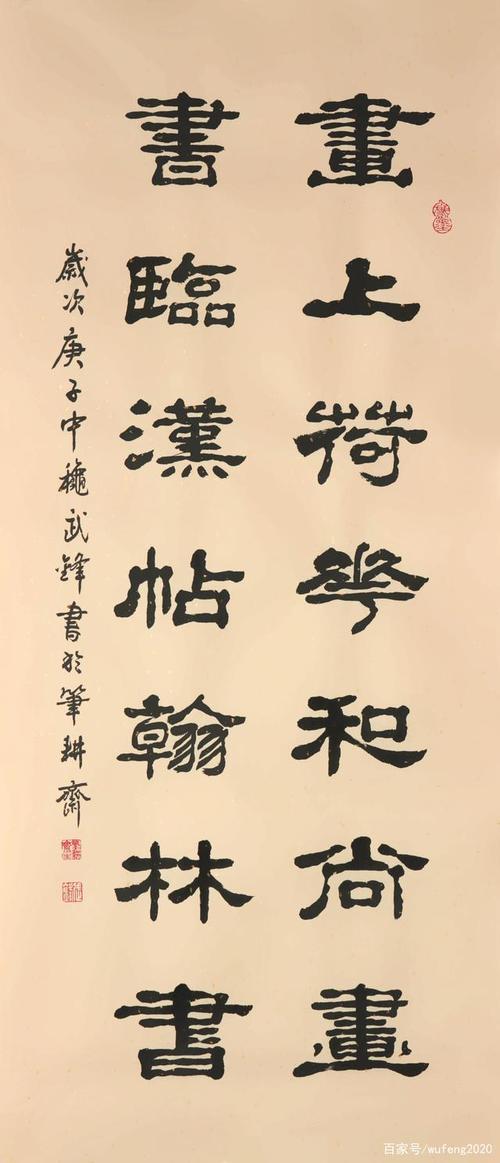 畫上荷花和尚畫
書臨漢帖翰林書
歲次庚子中穐武鋒書於筆耕齋
百家号/wufeng2020